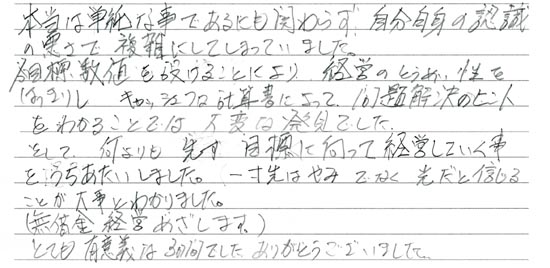 本当は単純な事であるにも関わらず、自分自身の認識
の悪さで複雑にしてしまっていました。
目標数値を設けることにより、経営のとうめい性を
はっきりし キャッシュフロー計算書によって、問題解決のヒント
をわかることでは 大変な発見でした。
そして、何よりも 先ず 目標に向って経営していく事
をうちあたいしました。一寸先はやみ でなく 光だと信じる
ことが大事とわかりました。
(無借金経営めざします。)
とても有意義な3日間でした ありがとうございました。